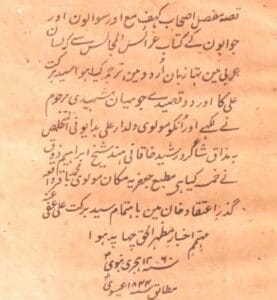 قصہ مفصل اصحاب کہف مع اور سوالون اور
جوابون کے کتاب عرائس المجالس سے کہ لسان
عربی مین ہتا زبان اُردو مین ترجمہ کیا ہوا سید برکت
علی کا اور دو قصیدے جو میان شہیدی مرحوم
نے لکھے اور اُنکو مولوی دلدار علی بدایونی المتخلص
بہ مذاق شاگرد رشید خاقانی ہند شیخ ابراہیم ذوق
نے خمسہ کیا ہی مطبع جعفریہ مکان مولوی محمد باقر واقعہ
گذر اعتقاد خان مین باہتمام سید برکت علی عفی عنہ
مہتمم اخبار مظہر الحق چہاپہ ہوا
سنہ ۱۲۶۰ ہجری نبوی
مطابق سنہ ۱۸۴۴ عیسوی